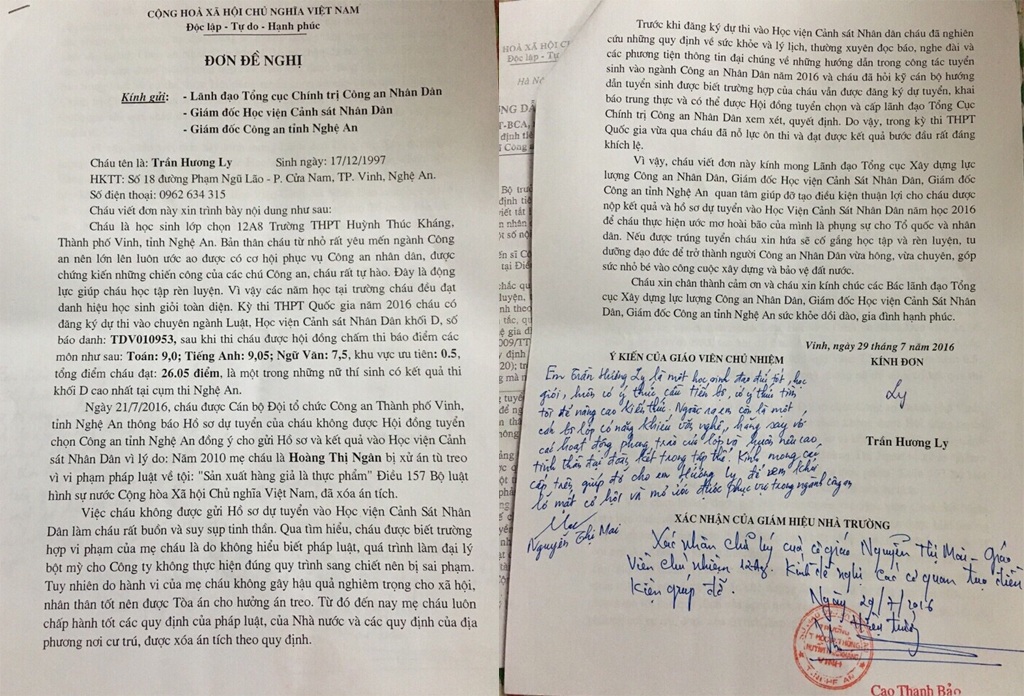 CỘNG HOÀ XÃ HỘI CHỦ NGHĨA VIỆT NAM
Độc lập - Tự do - Hạnh phúc
ĐƠN ĐỀ NGHỊ
Kính gửi: - Lãnh đạo Tổng cục Chính trị Công an Nhân Dân
- Giám đốc Học viện Cảnh sát Nhân Dân
- Giám đốc Công an tỉnh Nghệ An
Cháu tên là: Trần Hương Ly Sinh ngày: 17/12/1997
HKTT: Số 18 đường Phạm Ngũ Lão - P. Cửa Nam, TP. Vinh, Nghệ An.
Số điện thoại: 0962 634 315
Cháu viết đơn này xin trình bày nội dung như sau:
Cháu là học sinh lớp chọn 12A8 Trường THPT Huỳnh Thúc Kháng,
Thành phố Vinh, tỉnh Nghệ An. Bản thân cháu từ nhỏ rất yêu mến ngành Công
an nên lớn lên luôn ước ao được có cơ hội phục vụ Công an nhân dân, được
chứng kiến những chiến công của các chú Công an, cháu rất tự hào. Đây là động
lực giúp cháu học tập rèn luyện. Vì vậy các năm học tại trường cháu đều đạt
danh hiệu học sinh giỏi toàn diện. Kỳ thi THPT Quốc gia năm 2016 cháu có
đăng ký dự thi vào chuyên ngành Luật, Học viện Cảnh sát Nhân Dân khối D, số
báo danh: TDV010953, sau khi thi cháu được hội đồng chấm thi báo điểm các
môn như sau: Toán: 9,0; Tiếng Anh: 9,05; Ngữ Văn: 7,5, khu vực ưu tiên: 0.5,
tổng điểm cháu đạt: 26.05 điểm, là một trong những nữ thí sinh có kết quả thi
khối D cao nhất tại cụm thi Nghệ An.
Ngày 21/7/2016, cháu được Cán bộ Đội tổ chức Công an Thành phố Vinh,
tỉnh Nghệ An thông báo Hồ sơ dự tuyển của cháu không được Hội đồng tuyển
chọn Công an tỉnh Nghệ An đồng ý cho gửi Hồ sơ và kết quả vào Học viện Cảnh
sát Nhân Dân vì lý do: Năm 2010 mẹ cháu là Hoàng Thị Ngân bị xử án tù treo
vì vi phạm pháp luật về tội: "Sản xuất hàng giả là thực phẩm" Điều 157 Bộ luật
hình sự nước Cộng hòa Xã hội Chủ nghĩa Việt Nam, đã xóa án tích.
Việc cháu không được gửi Hồ sơ dự tuyển vào Học viện Cảnh Sát Nhân
Dân làm cháu rất buồn và suy sụp tinh thần. Qua tìm hiểu, cháu được biết trường
hợp vi phạm của mẹ cháu là do không hiểu biết pháp luật, quá trình làm đại lý
bột mỳ cho Công ty không thực hiện đúng quy trình sang chiết nên bị sai phạm.
Tuy nhiên do hành vi của mẹ cháu không gây hậu quả nghiêm trọng cho xã hội,
nhân thân tốt nên được Tòa án cho hưởng án treo. Từ đó đến nay mẹ cháu luôn
chấp hành tốt các quy định của pháp luật, của Nhà nước và các quy định của địa
phương nơi cư trú, được xóa án tích theo quy định.
Trước khi đăng ký dự thi vào Học viện Cảnh sát Nhân Dân cháu đã nghiên
cứu những quy định về sức khỏe và lý lịch, thường xuyên đọc báo, nghe đài và
các phương tiện thông tin đại chúng về những hướng dẫn trong công tác tuyển
sinh vào ngành Công an Nhân Dân năm 2016 và cháu đã hỏi kỹ cán bộ hướng
dẫn tuyển sinh được biết trường hợp của cháu vẫn được đăng ký dự tuyển, khai
báo trung thực và có thể được Hội đồng tuyển chọn và cấp lãnh đạo Tổng Cục
Chính trị Công an Nhân Dân xem xét, quyết định. Do vậy, trong kỳ thi THPT
Quốc gia vừa qua cháu đã nỗ lực ôn thi và đạt được kết quả bước đầu rất đáng
khích lệ.
Vì vậy, cháu viết đơn này kính mong Lãnh đạo Tổng cục Xây dựng lực
lượng Công an Nhân Dân, Giám đốc Học viện Cảnh Sát Nhân Dân, Giám đốc
Công an tỉnh Nghệ An quan tâm giúp đỡ tạo điều kiện thuận lợi cho cháu được
nộp kết quả và hồ sơ dự tuyển vào Học viện Cảnh Sát Nhân Dân năm học 2016
để cháu thực hiện ước mơ hoài bão của mình là phụng sự cho Tổ quốc và nhân
dân. Nếu được trúng tuyển cháu xin hứa sẽ cố gắng học tập và rèn luyện, tu
dưỡng đạo đức để trở thành người Công an Nhân Dân vừa hồng, vừa chuyên, góp
sức nhỏ bé vào công cuộc xây dựng và bảo vệ đất nước.
Cháu xin chân thành cảm ơn và cháu xin kính chúc các Bác lãnh đạo Tổng
cục Xây dựng lực lượng Công an Nhân Dân, Giám đốc Học viện Cảnh Sát Nhân
Dân, Giám đốc Công an tỉnh Nghệ An sức khỏe dồi dào, gia đình hạnh phúc.
Vinh, ngày 29 tháng 7 năm 2016
Ý KIẾN CỦA GIÁO VIÊN CHỦ NHIỆM KÍNH ĐƠN
Em Trần Hương Ly là một học sinh đạo đức tốt, học
giỏi, luôn có ý thức cầu tiến bộ, có ý thức tìm
tòi để nâng cao kiến thức. Ngoài ra em còn là một
cán bộ lớp có năng khiếu văn nghệ, hăng say với
các hoạt động phong trào của lớp và luôn nêu cao
tinh thần đại đoàn kết trong tập thể. Kính mong các
cấp trên giúp đỡ cho em Hương Ly để em
có một cơ hội và mơ ước được phục vụ trong ngành công an
Ly
Trần Hương Ly
Mai
Nguyễn Thị Mai
XÁC NHẬN CỦA GIÁM HIỆU NHÀ TRƯỜNG
Xác nhận chữ ký của cô giáo Nguyễn Thị Mai - Giáo
Viên chủ nhiệm 12A8. Kính đề nghị các cơ quan tạo điều
kiện giúp đỡ.
Ngày 29/7/2016
Hiệu trưởng
Cao Thanh Bảo